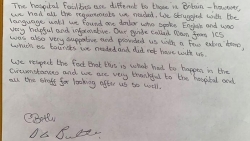 The hospital facilities are different to those in Britain - however,
we had all the requirements we needed. We struggled with the
language until we found one doctor who spoke English and was
very helpful and informative. Our guide called Alan from ICS
was also very supportive and provided us with a few extra items,
which as tourists we needed and did not have with us.
We respect the fact that this is what had to happen in the
circumstances and we are very thankful to the hospital and
all the staff for looking after us so well.